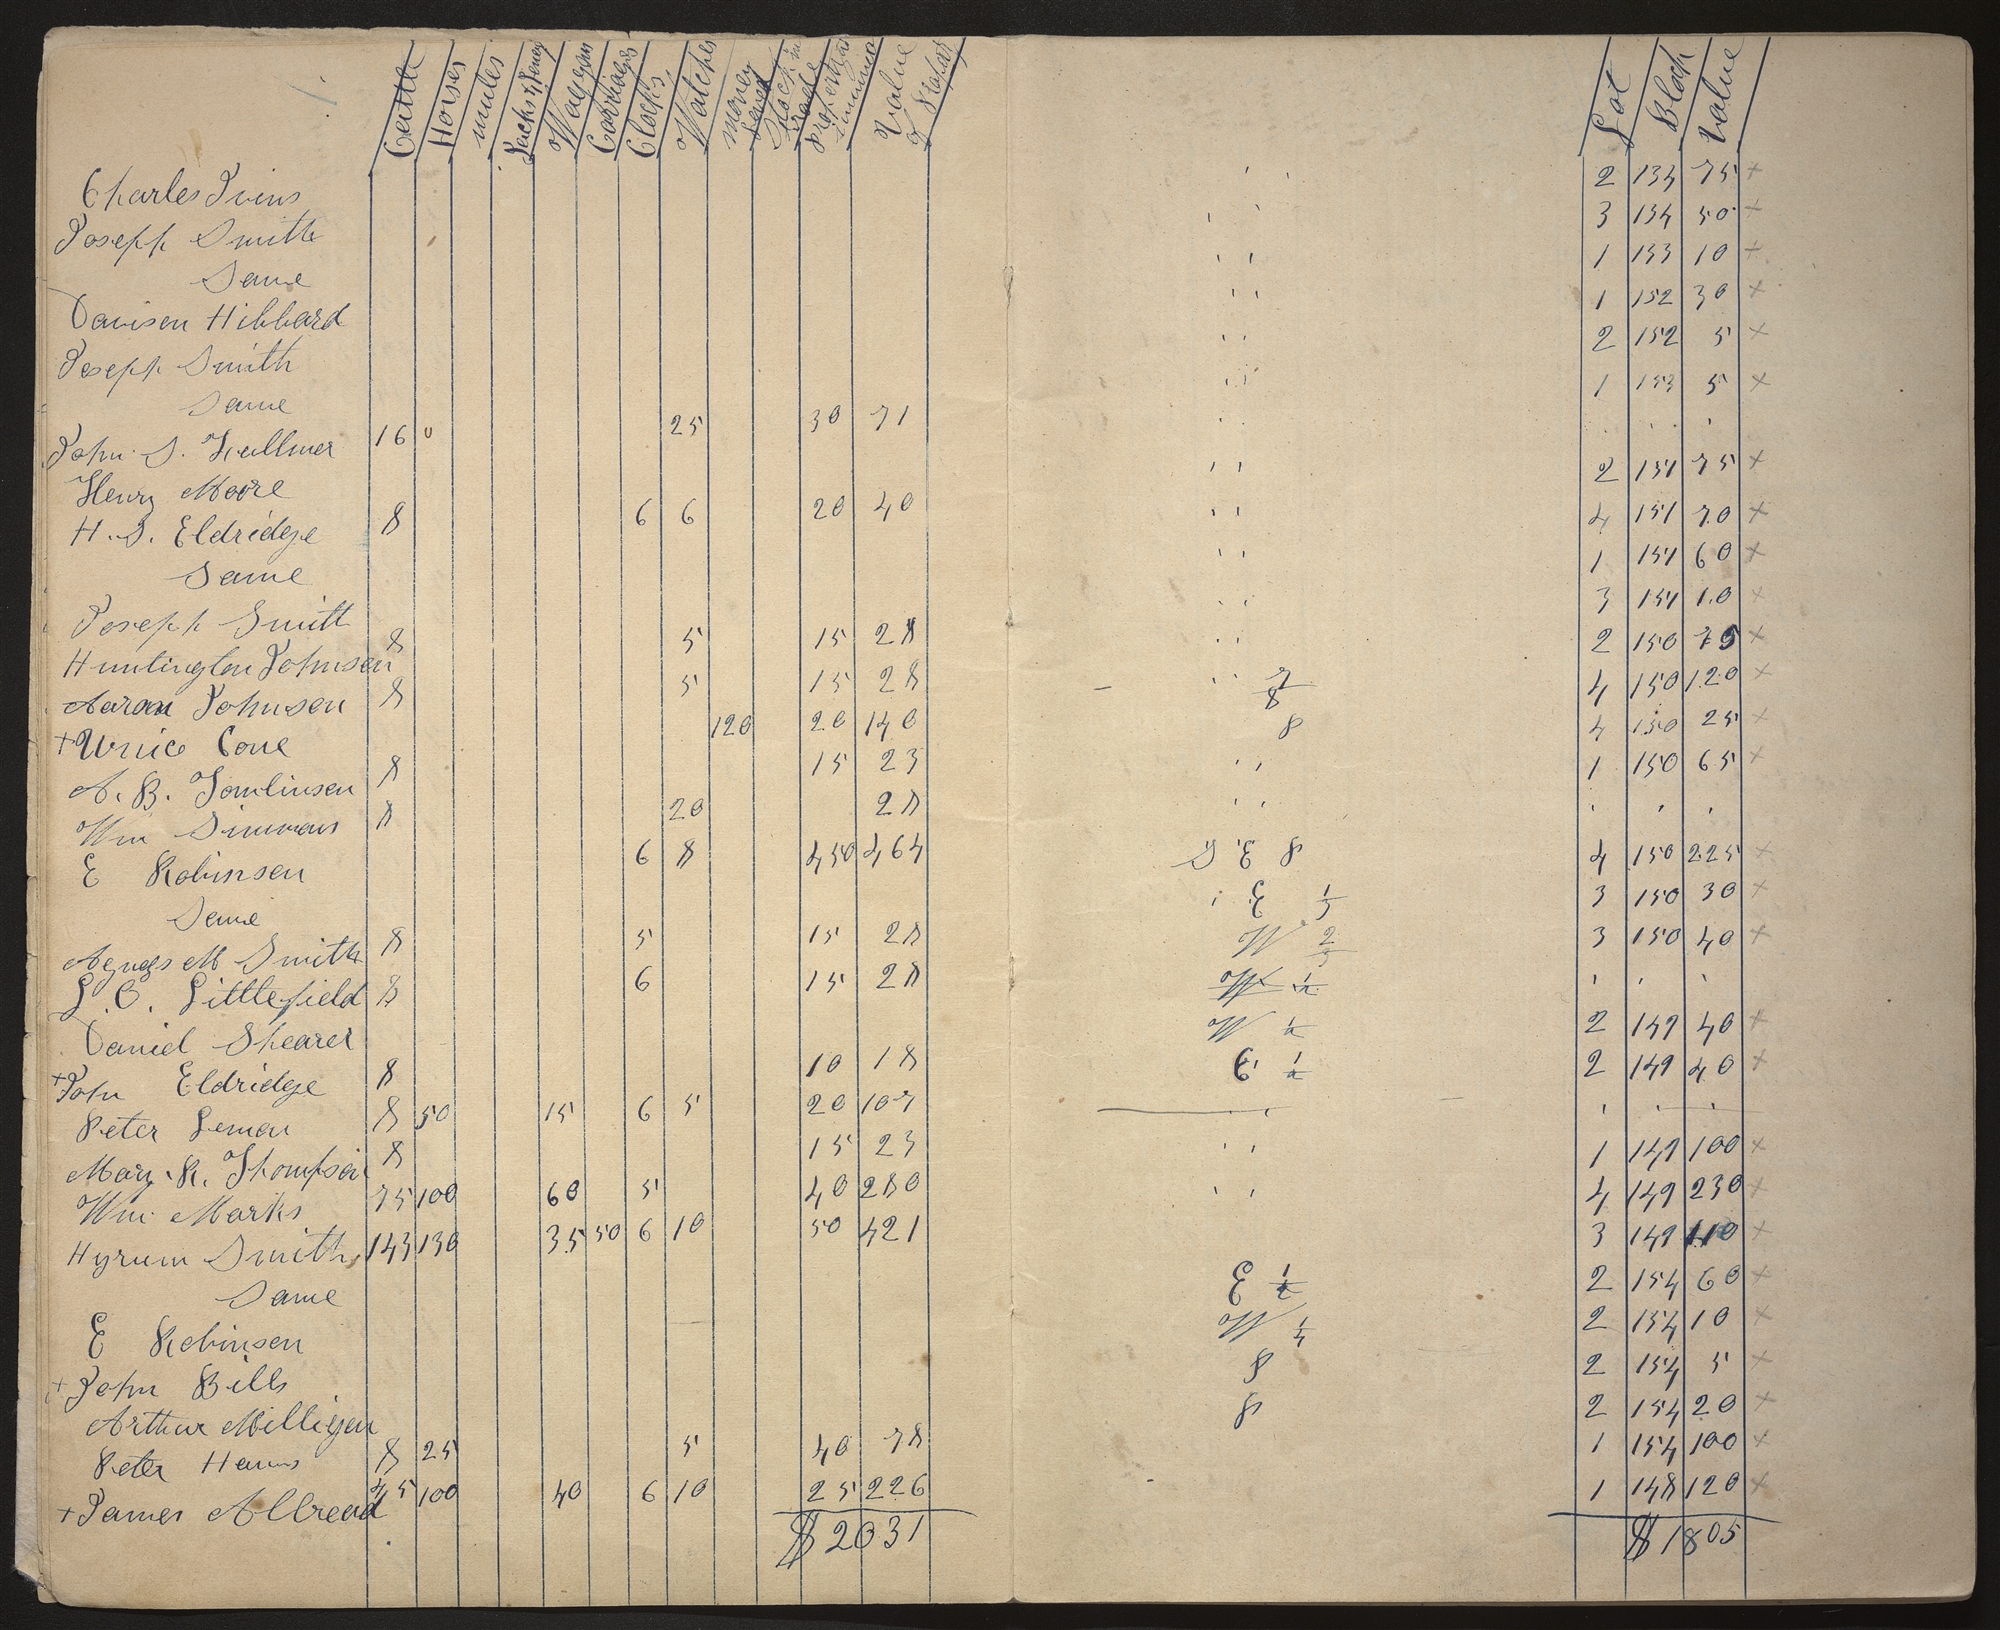 Cattle Horses mules Jacks & Jeneys Waggons Carriages Clocks, Watches money loaned Stock in trade Value of Property Lot Block Value
Charles Ivins 2 134 75 x
Joseph Smith 3 134 50 x
Same 1 133 10 x
Davison Hibbard 1 152 30 x
Joseph Smith 2 152 5 x
Same 1 153 5 x
John S. Fullmer 16 0 25 30 71
Henry Moore 2 151 75 x
H. S. Eldridge 8 6 6 20 40 4 151 70 x
Same 1 151 60 x
Joseph Smith 3 151 10 x
Huntington Johnson 8 5 15 28 2 150 75 x
Aaron Johnson 8 5 15 28 7/8 4 150 120 x
+ Urnice Cone 120 20 140 P 4 150 25 x
A. B. Tomlinson 8 15 23 1 150 65 x
Wm Simmons 8 20 28
E Robinson 6 8 450 464 S E P 4 150 225 x
Same E 1/3 3 150 30 x
Agness M Smith 8 5 15 28 W 2/3 3 150 40 x
L. O. Littlefield 8 6 15 28 W 1/2
Daniel Shearer W 1/2 2 149 40 x
+ John Eldridge 8 10 18 E 1/2 2 149 40 x
Peter Lemon 8 50 15 6 5 20 107
Mary. R. Thompson 8 15 23 1 149 100 x
Wm Marks 75 100 60 5 40 280 4 149 230 x
Hyrum Smith 143 130 35 50 6 10 50 421 3 149 110 x
Same E 1/2 2 154 60 x
E Robinson W 1/4 2 154 10 x
+ John Bills P 2 154 5 x
Arthur Milligen P 2 154 20 x
Peter Haws 8 25 5 40 78 1 154 100 x
+ James Allread 45 100 40 6 10 25 226 1 148 120 x
$ 2031 $ 1805